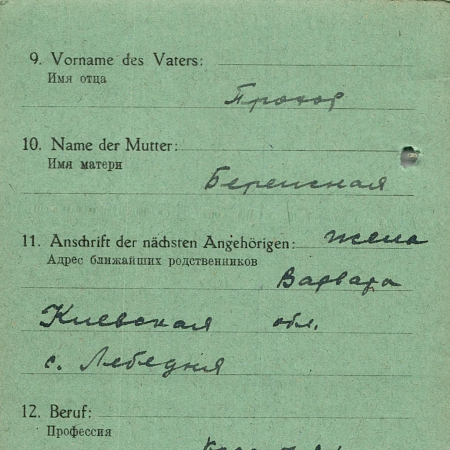 9. Vorname des Vaters:
Имя отца
Прохор
10. Name der Mutter:
Имя матери
11. Anschrift der nächsten Angehörigen: жена
Адрес ближайших родственников
Варвара
Киевская обл.
с. Лебедня
12. Beruf:
Профессия